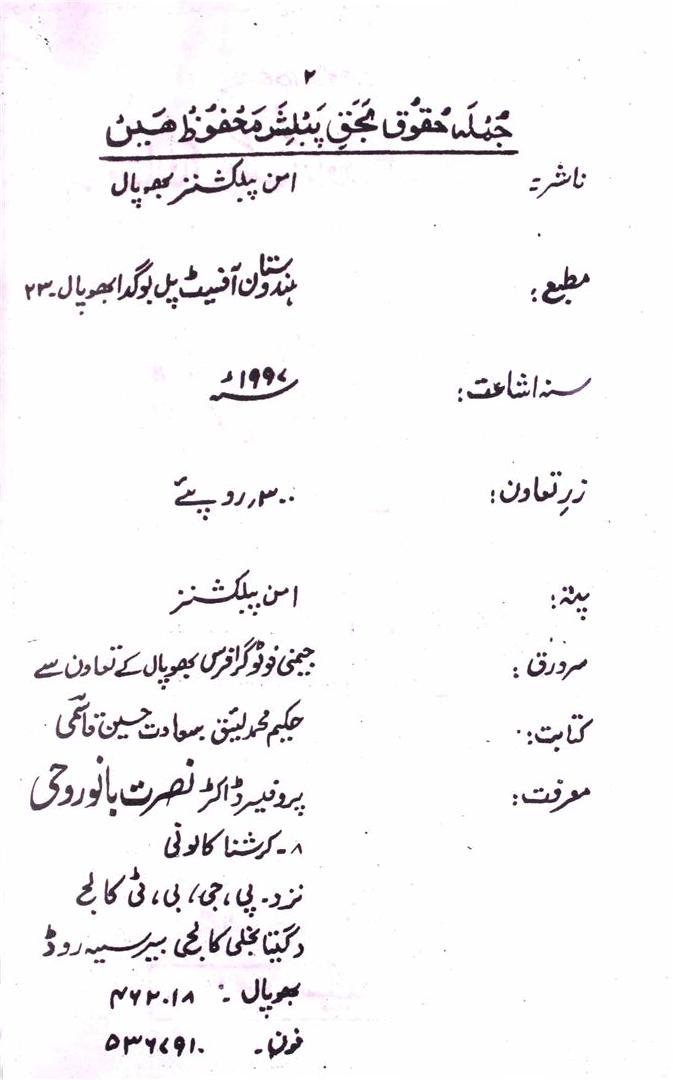 ۲
جُملہ حقوق بحقِ پبلشر محفوظ ھیں
ناشر۔ امن پبلکشنز بھوپال
مطبع: ہندوستان آفسیٹ پل بوگدا بھوپال۔۲۳
سنہ اشاعت: ۱۹۹۷ء
زرِ تعاون: ۳۰۰؍ روپئے
پتہ: امن پبلکشنز
سرورق: جیمنی فوٹو گرافرس بھوپال کے تعاون سے
کتابت: حکیم محمد لئیق سعادت حسین قاسمی
معرفت: پروفیسر ڈاکٹر نصرت بانو روحی
۸۔ کرشنا کالونی
نزد۔ پی، جی، بی، ٹی کالج
(گیتانجلی کالج) بیرسیہ روڈ
بھوپال۔ ۴۶۲۰۱۸
فون۔ ۵۳۶۷۹۱۰